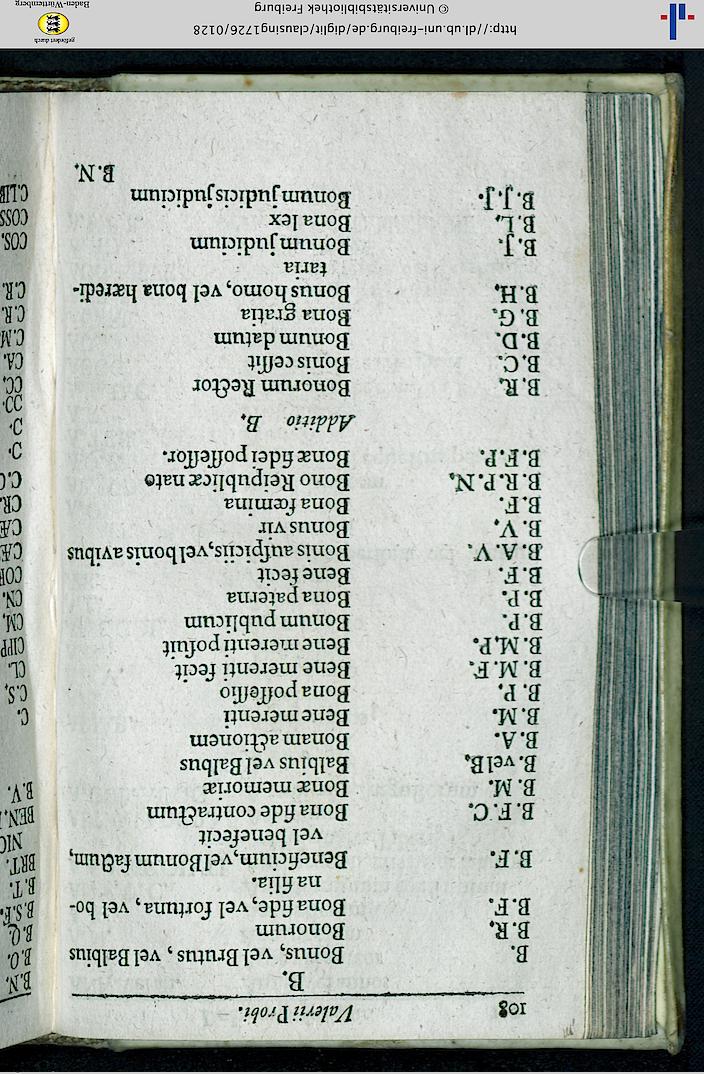 108 Valerii Probi.
B.
B. Bonus, vel Brutus, vel Balbius
B.R. Bonorum
B.F. Bona fide, vel fortuna, vel bo-
na filia.
B.F. Beneficium, vel Bonum factum,
vel benefecit
B.F.C. Bona fide contractum
B.M. Bonæ memoriæ
B. vel B. Balbius vel Balbus
B.A. Bonam actionem
B.M. Bene merenti
B.P. Bona possessio
B.M.F. Bene merenti fecit
B.M.P. Bene merenti posuit
B.P. Bonum publicum
B.P. Bona paterna
B.F. Bene fecit
B.A.V. Bonis auspiciis, vel bonis avibus
B.V. Bonus vir
B.F. Bona fœmina
B.R.P.N. Bono Reipublicæ nato
B.F.P. Bonæ fidei possessor.
Additio B.
B.R. Bonorum Rector
B.C. Bonis cessit
B.D. Bonum datum
B.G. Bona gratia
B.H. Bonus homo, vel bona hæredi-
taria
B.J. Bonum judicium
B.L. Bona lex
B.J.J. Bonum judicis judicium
B.N.
B.N.
B.O.
B.Q.
B.S.F.
B.T.
BRT.
NIC
BEN.
B.V.
C.
C.S.
CL.
CIPP
CM.
CN.
COH
CÆ
CÆ
CR.
C.C
C.
C.
CC.
CC.
CA.
C.M
C.R.
C.R.
COS.
COSS
C.LIB
http://dl.ub.uni-freiburg.de/diglit/clausing1726/0128
© Universitätsbibliothek Freiburg
gefördert durch
Baden-Württemberg